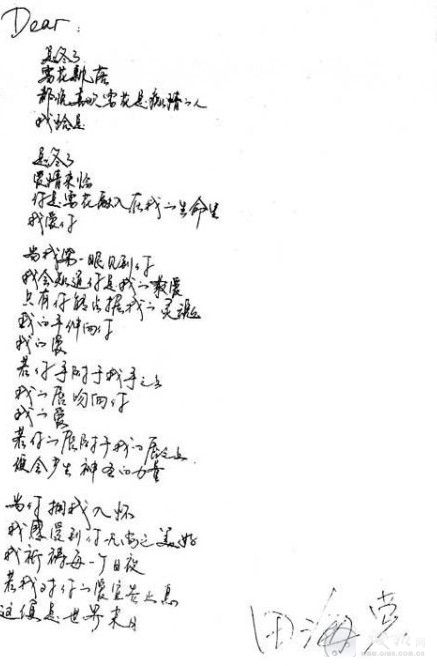 Dear:
是冬了
雪花飘落
都说喜欢雪花是痴情的人
我恰是
是冬了
爱情来临
你是雪花融入在我的生命里
我爱你
当我第一眼见到你
我会知道你是我的最爱
只有你能占据我的灵魂
我的手伸向你
我的爱
若你手附于我手之上
我的唇吻向你
我的爱
若你的唇附于我的唇之上
便会产生神圣的力量
当你拥我入怀
我感受到你无尚之美好
我祈祷每一个日夜
若我对你的爱宣告止息
这便是世界末日
田海蓉